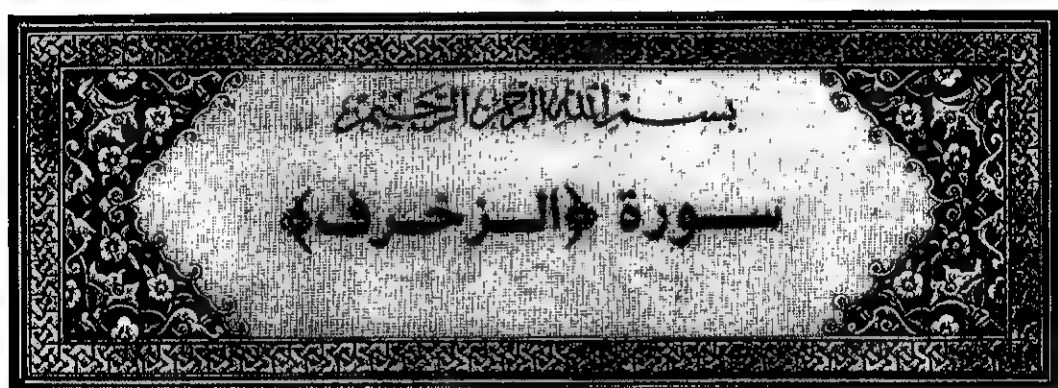 بسم الله الرحمن الرحيم
سورة ﴿الزخرف﴾